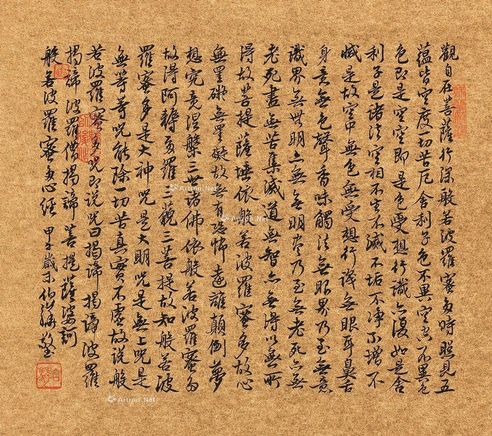 觀自在菩薩行深般若波羅蜜多時照見五
蘊皆空度一切苦厄舍利子色不異空空不異色
色即是空空即是色受想行識亦復如是舍
利子是諸法空相不生不滅不垢不淨不增不
減是故空中無色無受想行識無眼耳鼻舌
身意無色聲香味觸法無眼界乃至無意
識界無無明亦無無明盡乃至無老死亦無
老死盡無苦集滅道無智亦無得以無所
得故菩提薩埵依般若波羅蜜多故心
無罣礙無罣礙故無有恐怖遠離顛倒夢
想究竟涅槃三世諸佛依般若波羅蜜多
故得阿耨多羅三藐三菩提故知般若波
羅蜜多是大神咒是大明咒是無上咒是
無等等咒能除一切苦真實不虛故說般
若波羅蜜多咒即說咒曰揭諦揭諦波羅
揭諦波羅僧揭諦菩提薩婆訶
般若波羅蜜多心經